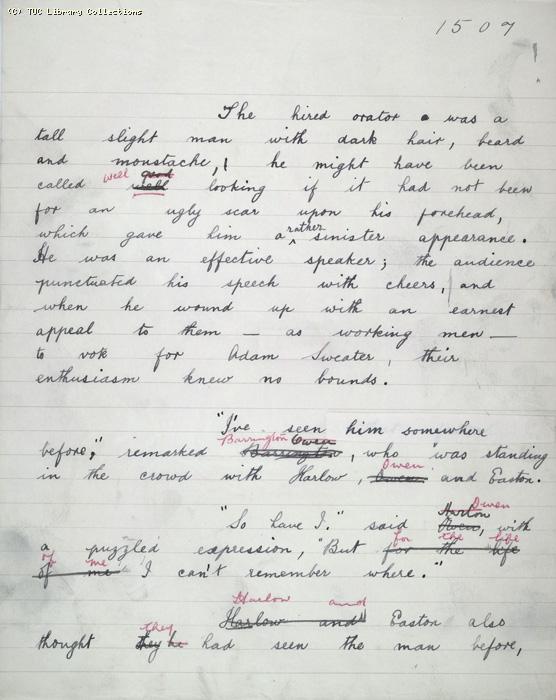 (C) TUC Library Collections
1507
The hired orator was a
tall slight man with dark hair, beard
and moustache, he might have been
well good
called well looking if it had not been
for an ugly scar upon his forehead,
which gave him a rather sinister appearance.
He was an effective speaker; the audience
punctuated his speech with cheers, and
when he wound up with an earnest
appeal to them – as working men –
to vote for Adam Sweater, their
enthusiasm knew no bounds.
"I've seen him somewhere
Barrington Owen
before," remarked Barrington, who was standing
Owen
in the crowd with Harlow, Owen and Easton.
Harlow Owen
"So have I." said Owen, with
for the life
a puzzled expression, "But for the life
of me
of me I can't remember where."
Harlow and
Harlow and Easton also
they
thought they he had seen the man before,